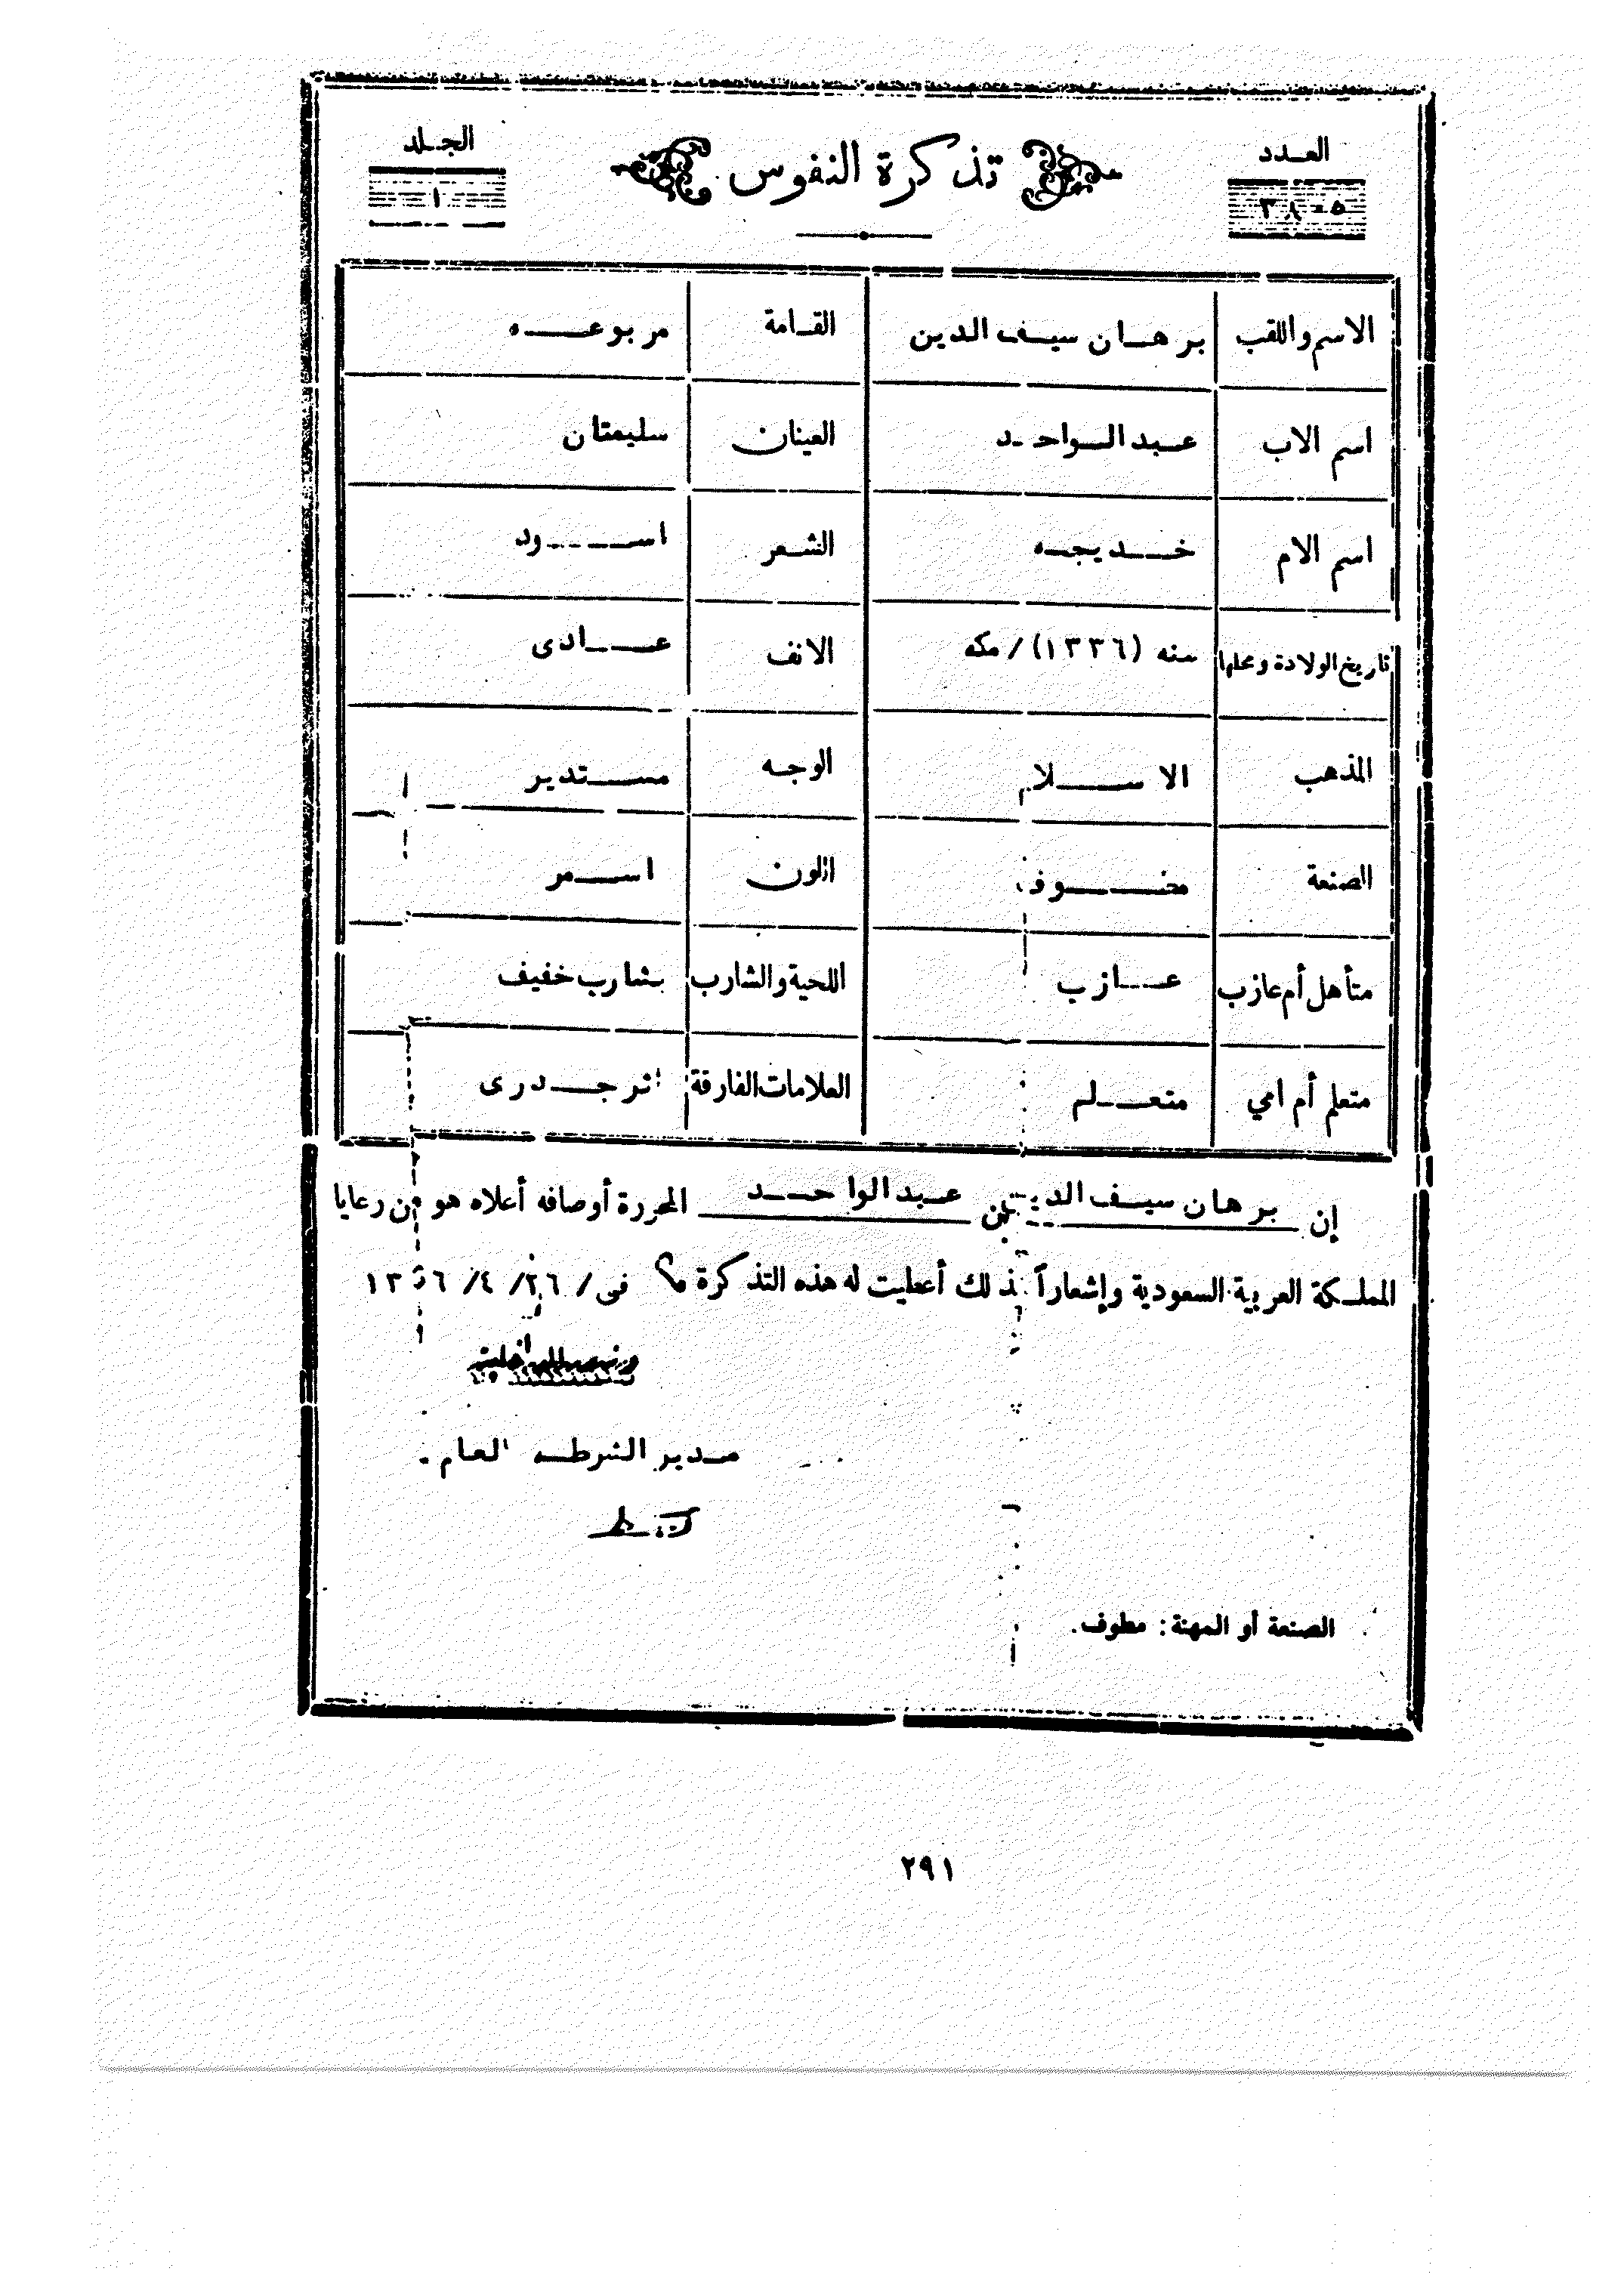 العدد تذكرة النفوس الجلد
٣٨٠٥ ١
الاسم واللقب برهان سيف الدين القامة مربوعه
اسم الاب عبد الواحد العينان سليمتان
اسم الام خديجه الشعر اسود
تاريخ الولادة ومحلها سنه (١٣٣٦) / مكه الانف عادى
المذهب الاسلام الوجه مستدير
الصنعة اللون اسمر
متأهل أم عازب عازب اللحية والشارب بشارب خفيف
متعلم أم امي متعلم العلامات الفارقة اثر جدرى
إن برهان سيف الدين بن عبد الواحد المحررة أوصافه أعلاه هو من رعايا
المملكة العربية السعودية وإشعاراً بذلك أعطيت له هذه التذكرة م؟ فى / ٢٦ / ٤ / ١٣٥٦
مدير الشرطه العام
الصنعة أو المهنة : مطوف.
٢٩١